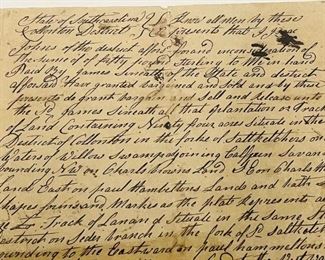 State of South carolina } Know all men by these
Collonton District } presents that I, Jas
Johns of the district afforesaid in consideration of
the sume of of fifty pound Sterling to Me in hand
Paid By James Sineath of the State and district
aforsaid have granted bargained and Sold and by these
presents do grant bargain and sell and release unto
the Sd James Sineath all that plantation or Track
of Land Containing Ninety four acres Situate in the
District of Collonton in the forke of Saltketchers on
Waters of Willow Swamp joining Calfpen Savan
bounding NW on Charls brownes Land S E on Charls
Land East on paul Hambeltons Lands and hath
Shapes forms and Markes as the plat Represents
Track of Lanand Situate in the Same
on Seder branch in the fork of Sd saltket
bounding to the Eastward on paul hammeltons